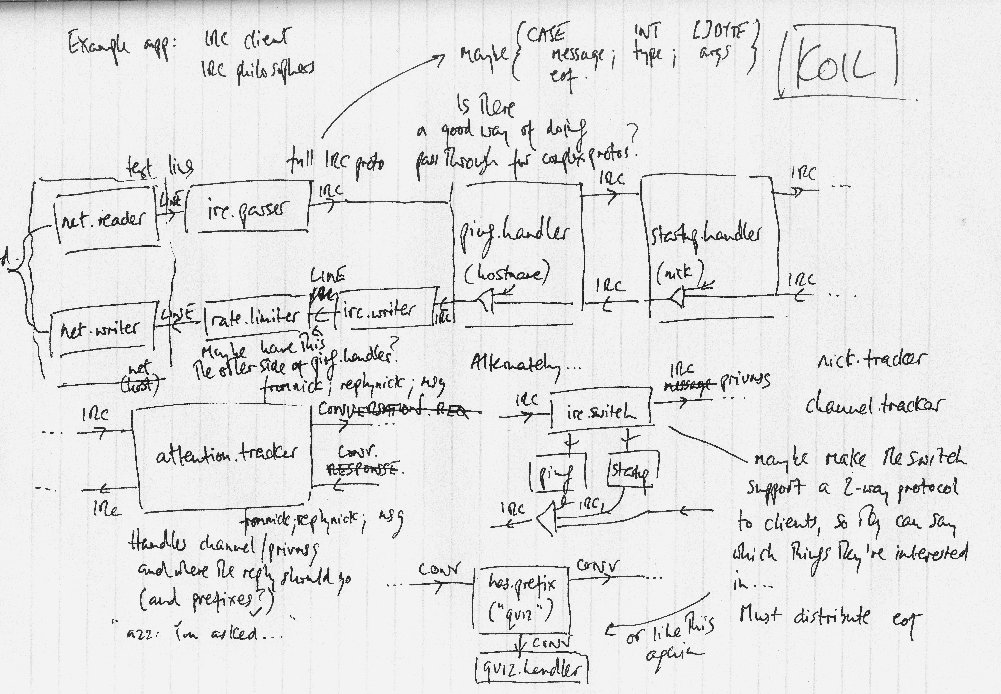 Example app: IRC client
IRC philosophers
maybe { CASE INT []BYTE }
message; type; args
eof.
KOIL
Is there
a good way of doing
passthrough for complex protos?
text line
full IRC proto
net.reader
LINE
irc.parser
IRC
ping.handler
(hostname)
IRC
startup.handler
(nick)
IRC
...
net.writer
LINE
rate.limiter
LINE
IRC
irc.writer
IRC
IRC
IRC
...
net
(host)
Maybe have this
the other side of ping.handler?
fromnick; replynick; msg
... IRC
attention.tracker
CONVERSATION.REQ
CONV.
RESPONSE.
... IRC
fromnick; replynick; msg
Handles channel/privmsg
and where the reply should go
(and prefixes?)
"azz: i'm asked..."
Alternately...
... IRC
irc.switch
IRC
message privmsg
ping
startup
IRC
IRC
nick.tracker
channel.tracker
maybe make the switch
support a 2-way protocol
to clients, so they can say
which things they're interested
in...
Must distribute eof
... CONV
has.prefix
("quiz")
CONV ...
CONV
quiz.handler
or like this
again